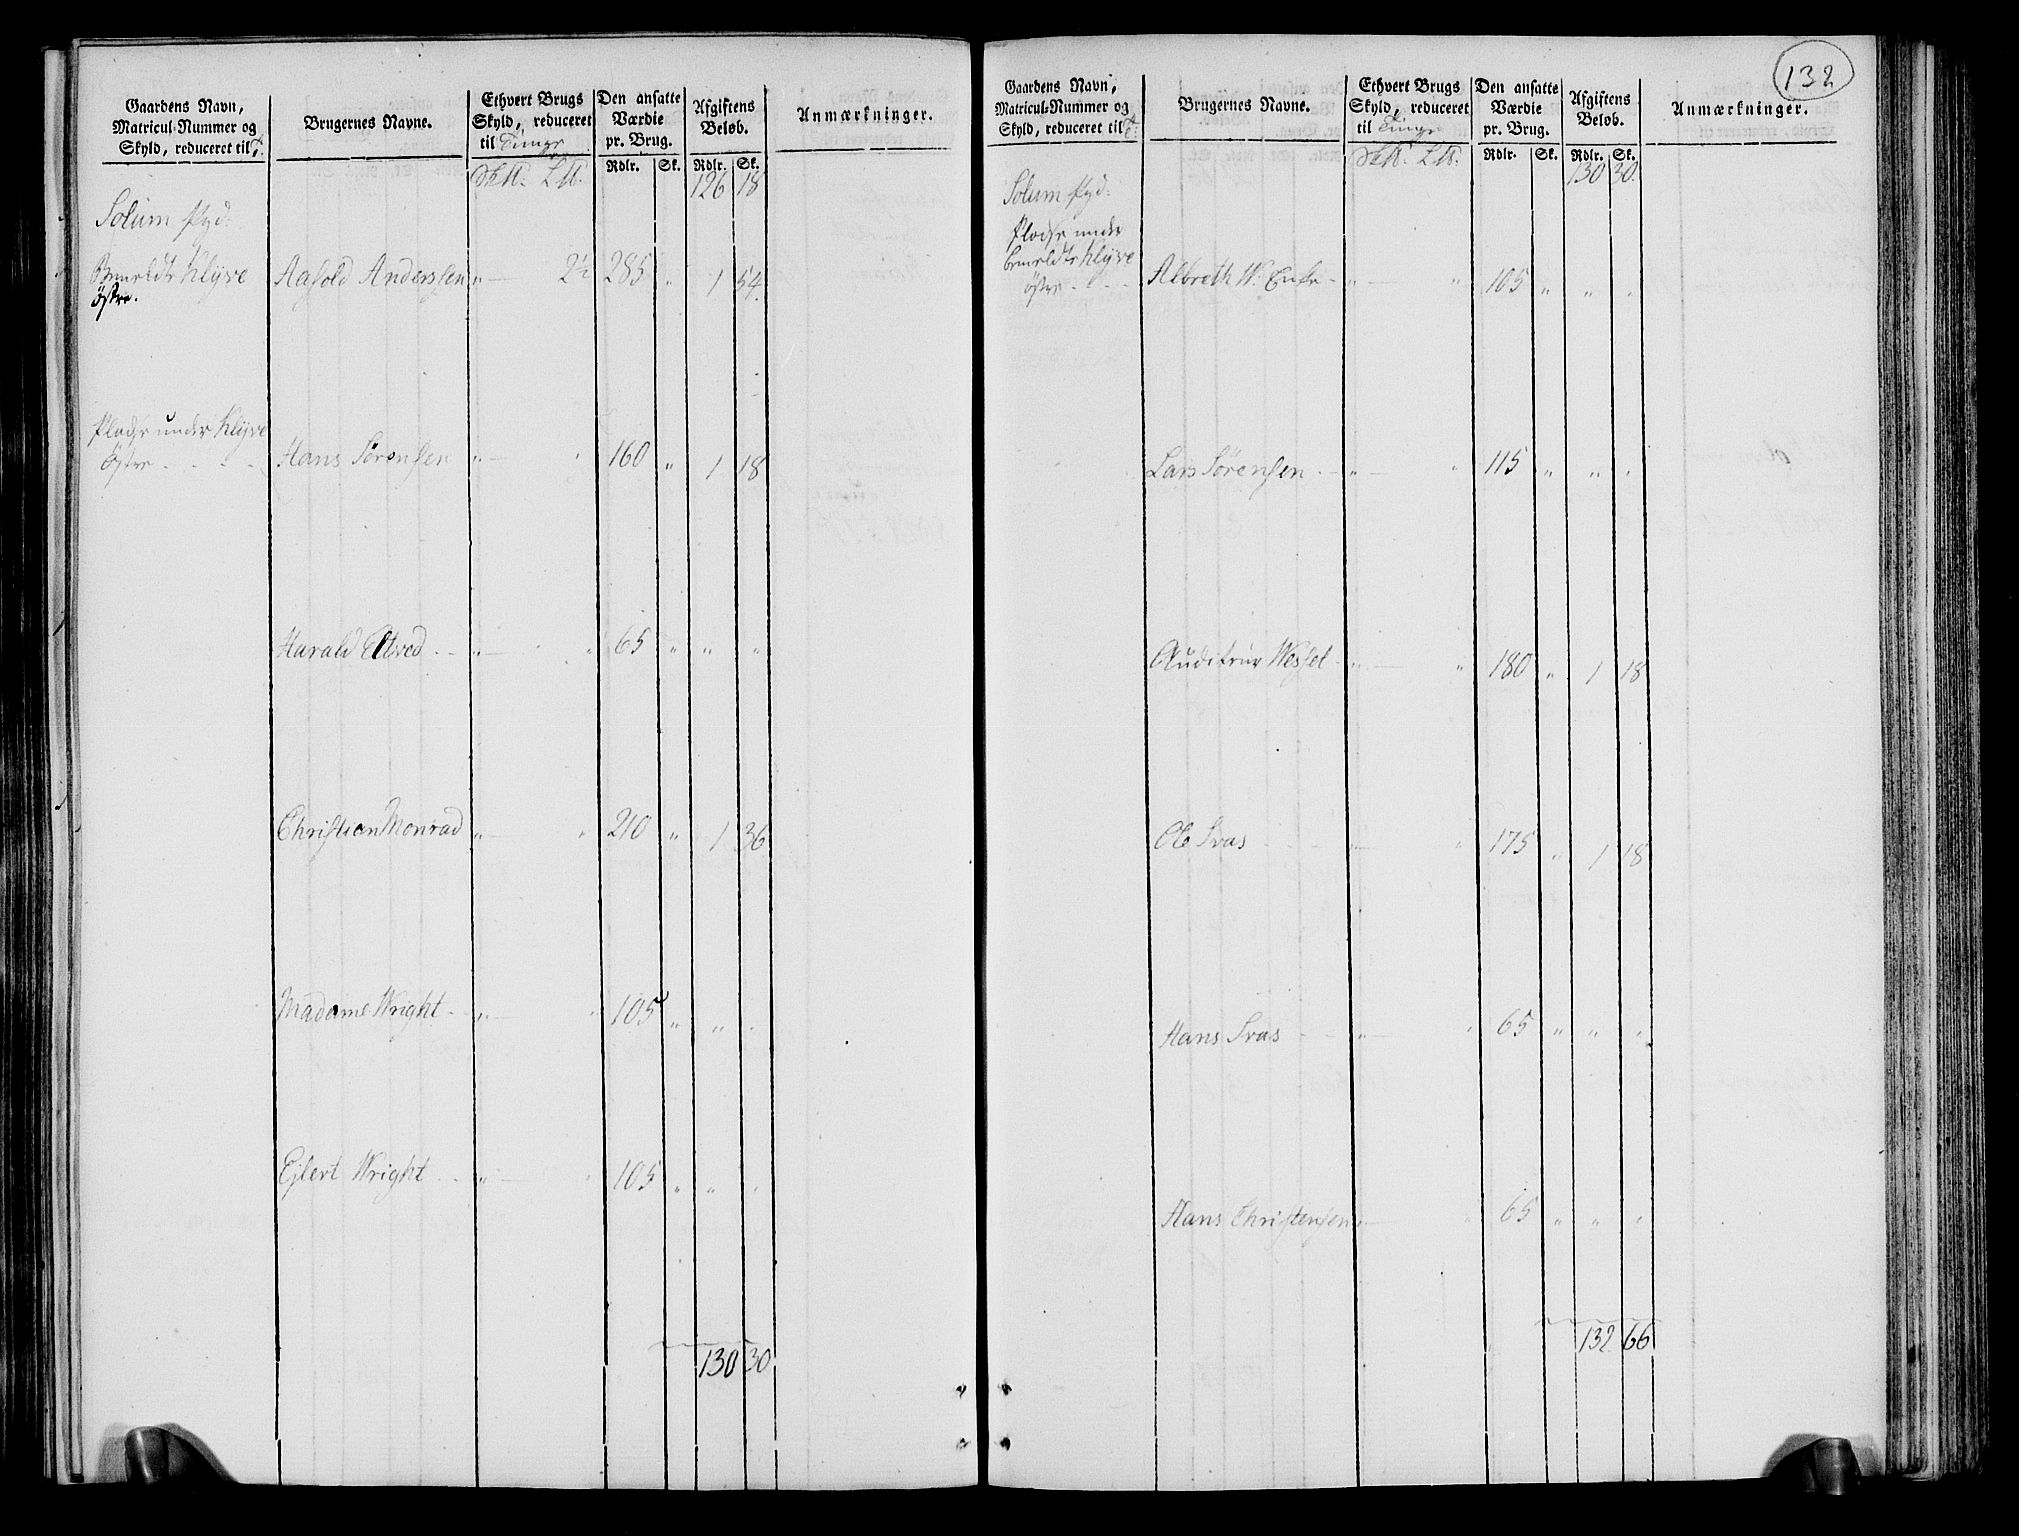 132
Gaardens Navn, Matricul-Nummer og Skyld, reduceret til
Brugernes Navne.
Ethvert Brugs Skyld, reduceret til Tunge
Den ansatte Værdie pr. Brug.
Afgiftens Beløb.
Anmærkninger.
Rdlr. Sk. Rdlr. Sk.
126 18
Solum
Bemeldte Klyve Aasold Anderssen " 2½ 285 " 1 54.
østre.
Pladse under Klyve
østre Hans Sørensen " " 160 " 1 18
Harald Eltved " " 65 " " "
Christian Monrad " " 210 " 1 36
Madame Wright " " 105 " " "
Ejlert Wright " " 105 " " "
130 30
Gaardens Navn, Matricul-Nummer og Skyld, reduceret til
Brugernes Navne.
Ethvert Brugs Skyld, reduceret til Tunge
Den ansatte Værdie pr. Brug.
Afgiftens Beløb.
Anmærkninger.
Rdlr. Sk. Rdlr. Sk.
130 30.
Solum
Pladse under
bemeldte Klyve
østre Albreth W. " " 105 " " "
Lars Sørensen " " 115 " " "
Auditeur Wessel " " 180 " 1 18
Ole Svas " " 175 " 1 18
Hans Svas " " 65 " " "
Hans Christensen " " 65 " " "
132 66